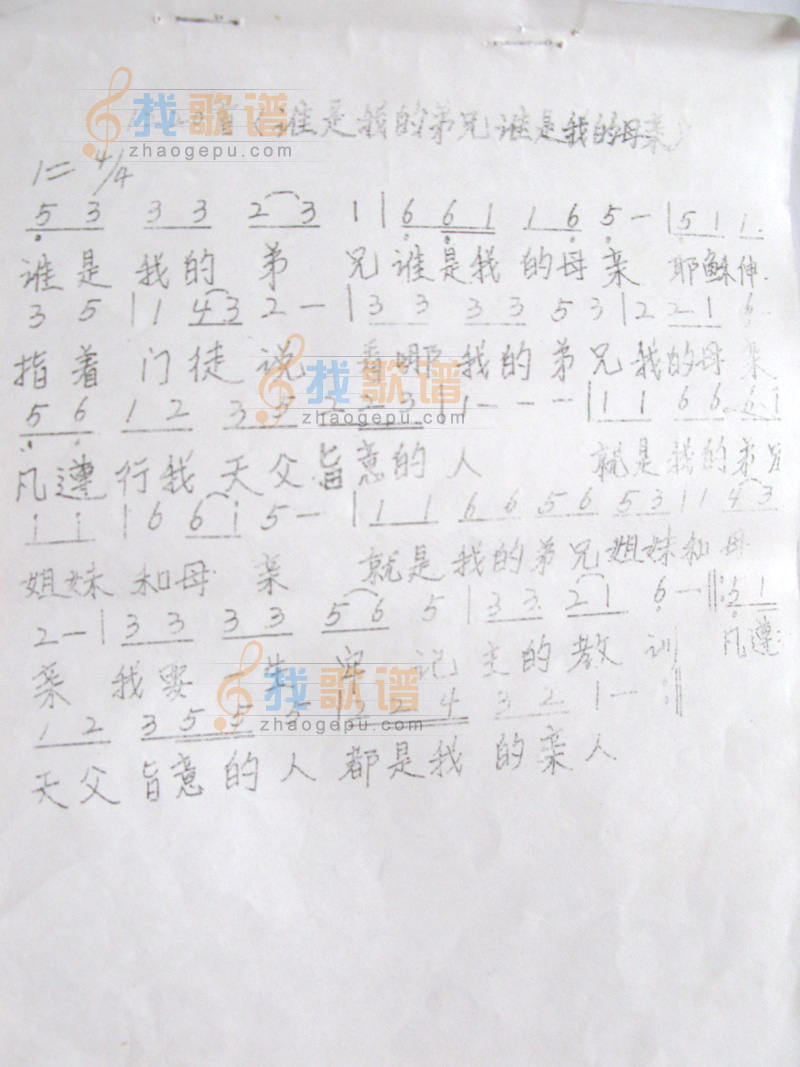 首《谁是我的弟兄谁是我的母亲》
1= 4/4
5 3 3 3 2 3 1 | 6 6 1 1 6 5 — | 5 1 1
谁是我的弟兄谁是我的母亲 耶稣伸
3 5 | 1 4 3 2 — | 3 3 3 3 5 3 | 2 2 1 6
指着门徒说 看哪我的弟兄我的母亲
5 6 1 2 3 5 2 2 3 | 1 — — — | 1 1 6 6 6 i
凡遵行我天父旨意的人 就是我的弟兄
i i | 6 6 i 5 — | 1 1 6 6 5 6 5 3 | 1 4 3
姐妹和母亲 就是我的弟兄姐妹和母
2 — | 3 3 3 3 5 6 5 | 3 3 2 1 6 — ‖: 5 1
亲 我要一生牢记主的教训 凡遵
1 2 3 5 5 5 | 3 2 4 3 2 1 — :‖
天父旨意的人都是我的亲人
找歌谱
zhaogepu.com
找歌谱
zhaogepu.com
找歌谱
zhaogepu.com
找歌谱
zhaogepu.com
找歌谱
zhaogepu.com
找歌谱
zhaogepu.com